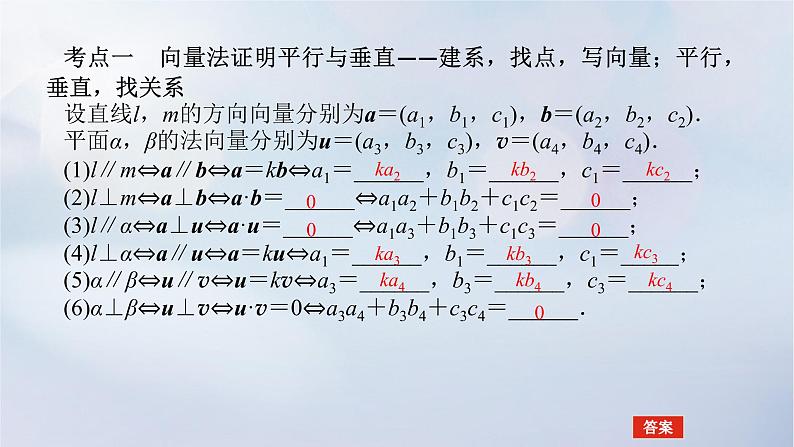 考点一　向量法证明平行与垂直——建系，找点，写向量；平行，
垂直，找关系
设直线l，m的方向向量分别为a＝(a₁，b₁，c₁)，b＝(a₂，b₂，c₂)．
平面α，β的法向量分别为u＝(a₃，b₃，c₃)，v＝(a₄，b₄，c₄)．
(1)l∥m⇔a∥b⇔a＝kb⇔a₁＝ka₂，b₁＝kb₂，c₁＝kc₂；
(2)l⊥m⇔a⊥b⇔a·b＝0⇔a₁a₂＋b₁b₂＋c₁c₂＝0；
(3)l∥α⇔a⊥u⇔a·u＝0⇔a₁a₃＋b₁b₃＋c₁c₃＝0；
(4)l⊥α⇔a∥u⇔a＝ku⇔a₁＝ka₃，b₁＝kb₃，c₁＝kc₃；
(5)α∥β⇔u∥v⇔u＝kv⇔a₃＝ka₄，b₃＝kb₄，c₃＝kc₄；
(6)α⊥β⇔u⊥v⇔u·v＝0⇔a₃a₄＋b₃b₄＋c₃c₄＝0．
答案